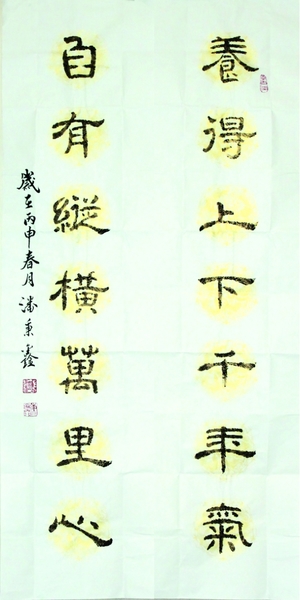 養得上下千年氣
自有縱橫萬里心
歲在丙申春月潘秉鑫